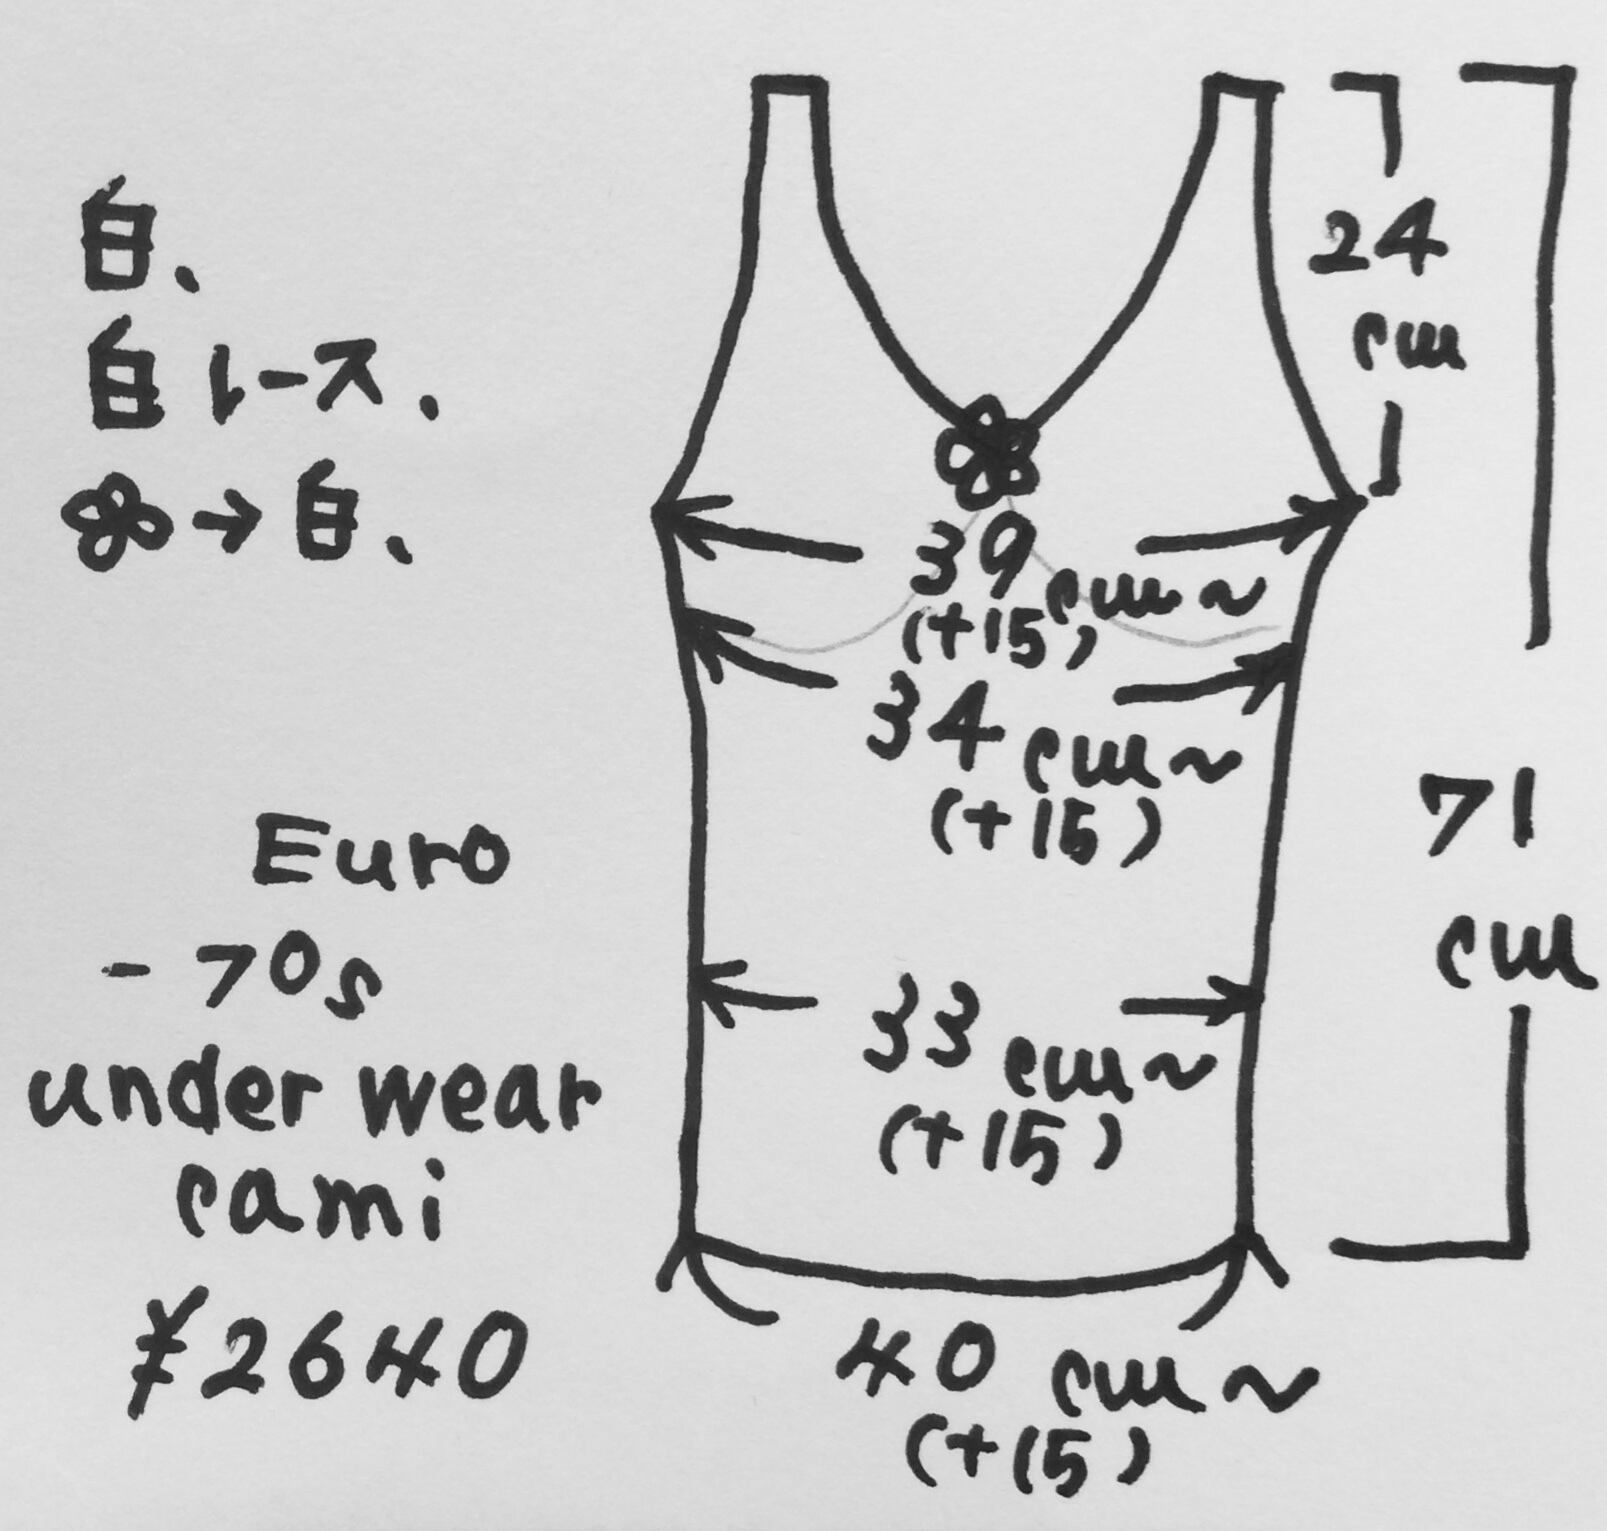 白、
白レース、
→白、
Euro
-70s
under wear
cami
¥2640
24
cm
39cm~
(+15)
34cm~
(+15)
71
cm
33cm~
(+15)
40cm~
(+15)